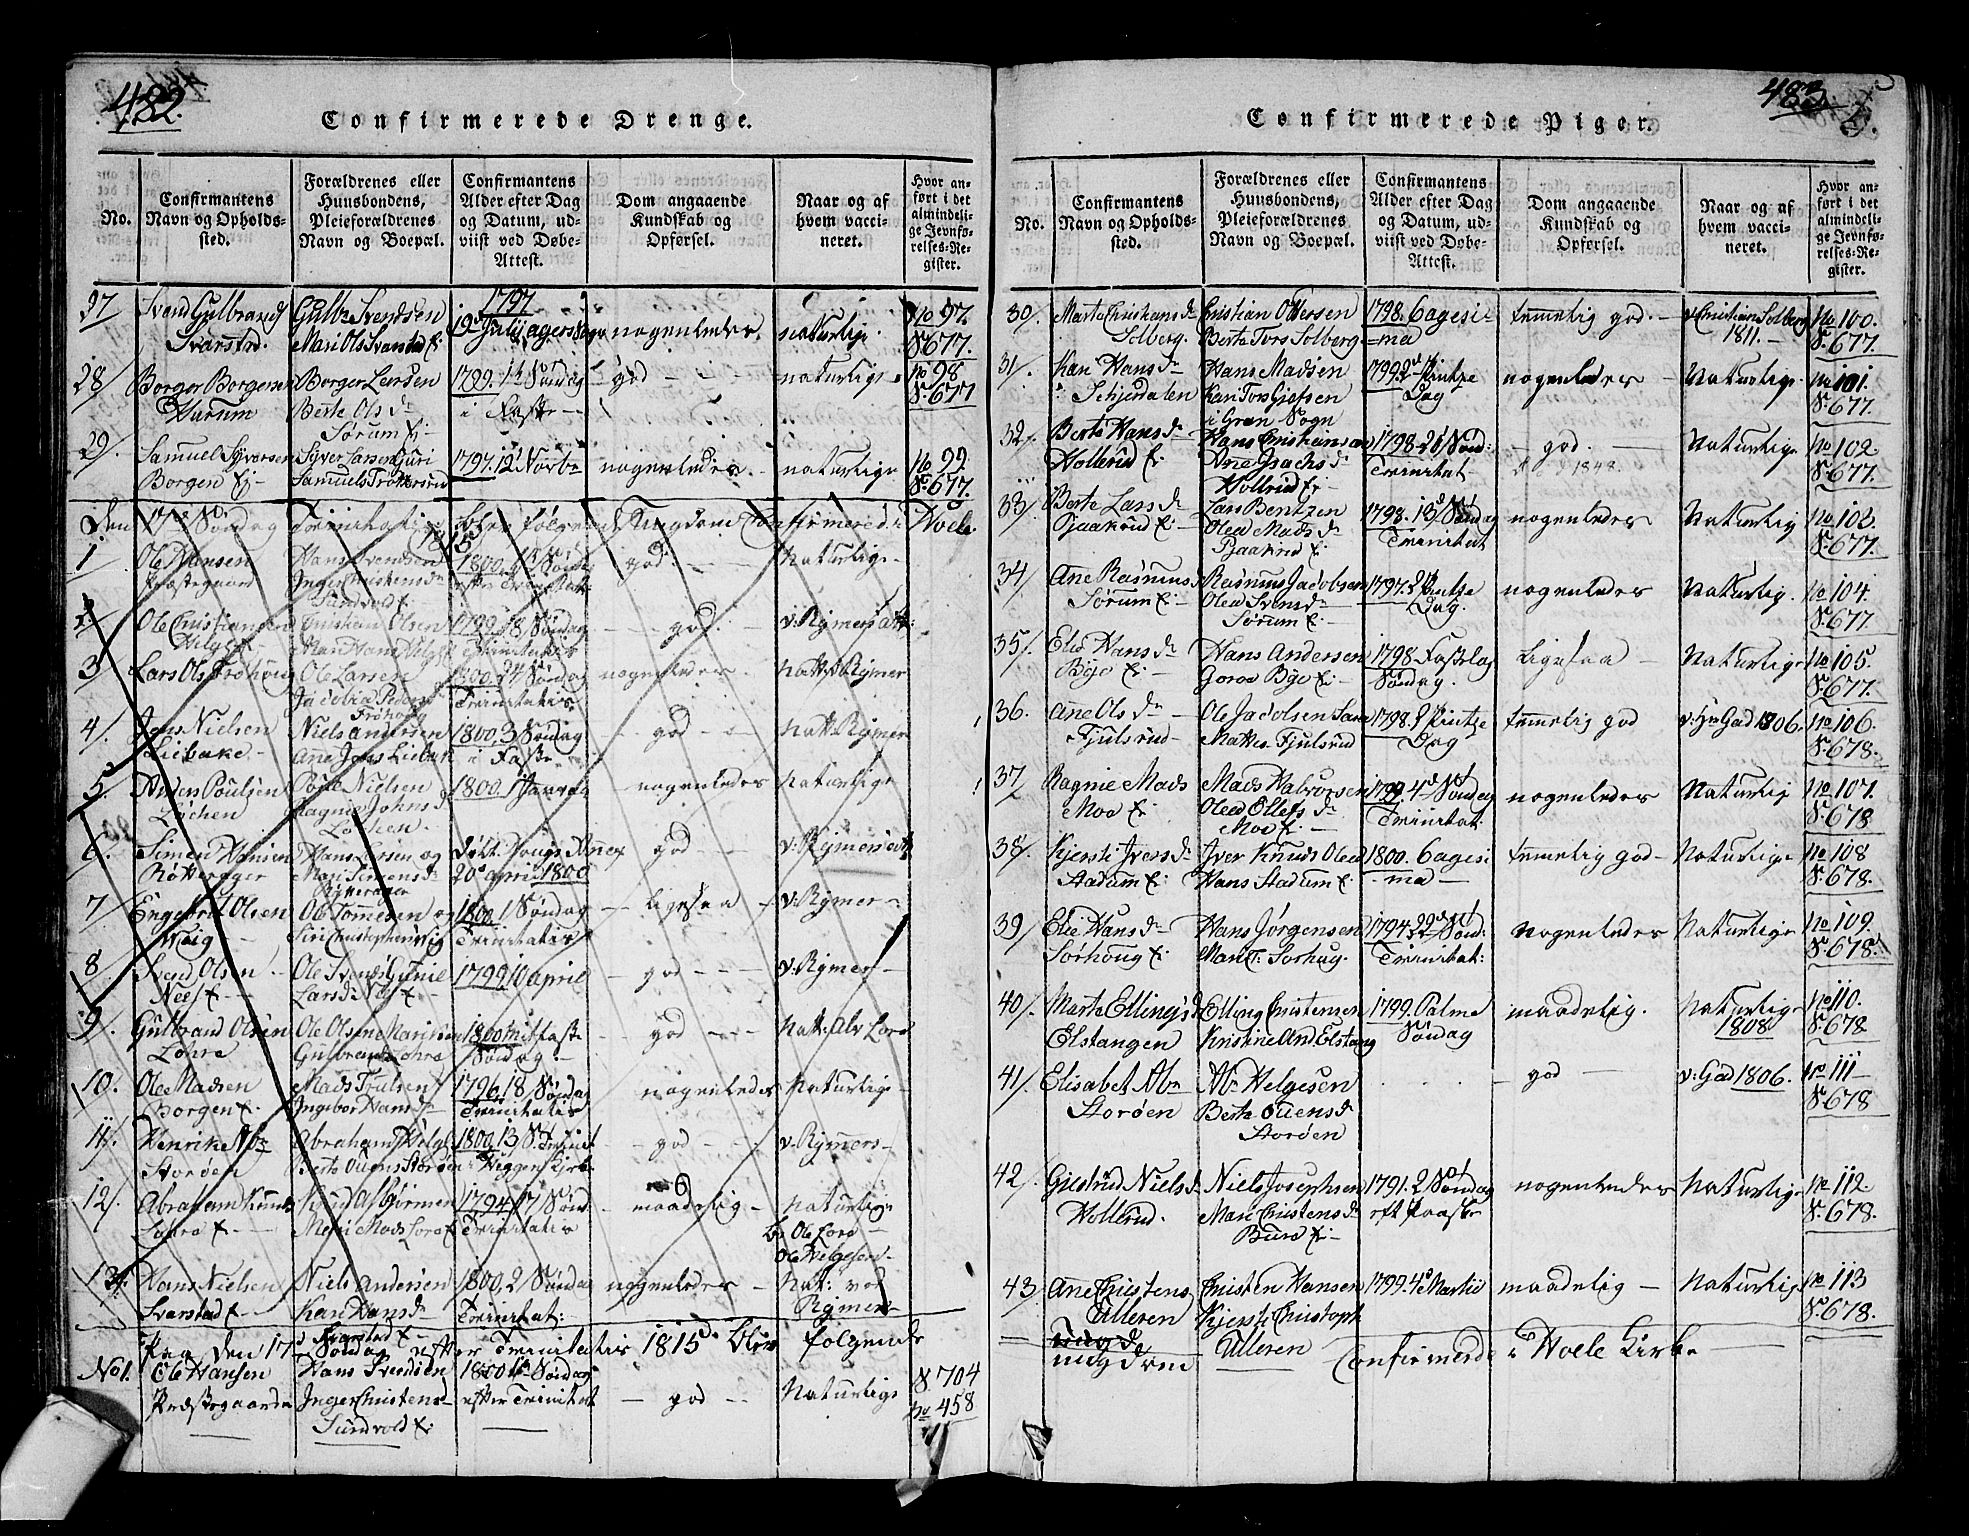 482.
Confirmerede Drenge.
No.
Confirmantens
Navn og Opholds-
sted.
Forældrenes eller
Huusbondens,
Pleieforældrenes
Navn og Boepæl.
Confirmantens
Alder efter Dag
og Datum, ud-
viist ved Døbe-
Attest.
Dom angaaende
Kundskab og
Opførsel.
Naar og af
hvem vacci-
neret.
Hvor an-
ført i det
almindeli-
ge Jevnfø-
relses-Re-
gister.
Svend Gulbrands
Svarstad.
Gulbr Svendsen
Mari Ols Svarstad
1797
nogenledes.
naturlig.
No 97.
S.677.
28/
Borger Borgersen
Hurum
Borger Larsen
Berte Ols d.
Sørum E.
1799. 1te Søndag
i Faste
god
naturlig.
No 98
S.677
29/.
Samuel Syversen
Borgen E.
Syver Larsen Guri
Samuels
1797. 12 Novbr
nogenledes.
naturlige
No 99.
S.677.
Den 17de Søndag
følgende Ungdom Confirmered i Hole.
1815
1
Ole Hansen
Præstegaard
Hans Svendsen
Inger Christensd
Sundvold E.
1800.
god
Naturlig
2.
Ole Christiansen
Helgs E.
Christian Olsen
1799. 18 Søndag
god
v. Rymers att:
3
Lars Ols Frøhoug
Ole Larsen
Jacobia Peders
Frøhoug
1800. 24 Søndag
Trinitatis
nogenledes
natt. v Rymer
4/.
Jens Nielsen
Liebake
Niels Andersen
Anne Jens Liebak
1800. 3 Søndag
i Faste
god
natt Rymer
5.
Anders Poulsen
Løchen
Poul Nielsen
Ragne Johns d
Løchen.
1800. 1 Januar
nogenledes
Naturlige
6.
Simen Hansen
Rötterager
Hans Larsen og
Mari Simensd
20 april 1800
god
v: Rymers att
7/
Engebret Olsen
Ole Tommesen og
1800. 1 Søndag
Trinitatis
ligesaa
v: Rymer
8/
Svend Olsen
Nees E
Ole Svends Gunild
Larsd Næs E
1799. 10 april
god
v: Rymer
9/.
Gulbrand Olsen
Lohre
Ole Olsen Mari
Gulbrand Lohre
1800 mitfaste
Søndag
god
Natt. Alv Lore
10.
Ole Madsen
Borgen E.
Mads Trulsen
Ingebor Hansd
1796. 18 Søndag
Trinitatis
nogenledes
Naturlige
11/.
Henrike Abr
Storøen
Abraham Helges
Berte Ouens Storøen
1800. 13 S. Trinit
Viggers Kirk
god
v: Rymers
12/.
Abraham Knuds
Lohre E
Knud Asbjørnsen
Mari Mads Lore E
1794. 17 Sønd
Trinitatis
maadelig
naturlig
Ole Lore
Ole Helgesen
13/.
Hans Nielsen
Svarstad E.
Niels Andersen
Kari Hans d
Svarstad E
1800. 2 Søndag
Trinitat:
nogenledes
Nat: ved
Rymers
Paa den 17 Søndag efter Trinitatis 1815 blev følgende
No1.
Ole Hansen
Præstegaarden
Hans Svendsen
Inger Christensd
Sundvold E.
1800 Søndag
efter Trinitat
god
Naturlig
S.704
No 458
483
Confirmerede Piger.
No.
Confirmantens
Navn og Opholds-
sted.
Forældrenes eller
Huusbondens,
Pleieforældrenes
Navn og Boepæl.
Confirmantens
Alder efter Dag
og Datum, ud-
viist ved Døbe-
Attest.
Dom angaaende
Kundskab og
Opførsel.
Naar og af
hvem vacci-
neret.
Hvor an-
ført i det
almindeli-
ge Jevnfø-
relses-Re-
gister.
30/.
Marte Christians d
Solberg.
Christian Ottersen
Berte Tors Solberg.
1798. 6agesi
=ma
temmelig god.
v Christian Solberg
1811.
No 100.
S.677.
31/.
Kari Hans d
Schjerdalen
Hans Madsen
Kari Tors Gjefsen
i Gran Sogn
1799. 2 Pintse
Dag
nogenledes
Naturlige
No 101.
S.677.
32/.
Berte Hans d
Hollerud E.
Hans Christiansen
Ane Isachs d
Hollerud E.
1798. 21 Sønd:
Trinitat
god
1848.
Naturlige
No 102.
S.677.
33/
Berte Lars d
Pjaakrud E.
Lars Bentzen
Olea Mads d
Pjaakrud E.
1798. 13 Søndag
Trinitat
nogenledes
Naturlig
No 103.
S.677.
34/
Ane Rasmus
Sørum E.
Rasmus Jacobsen
Olea Svens d
Sørum E.
1797. 2 Pintse
Dag.
nogenledes
Naturlig.
No 104.
S.677
35/.
Elie Hans d
Bye E.
Hans Andersen
Goroe Bye E.
1798. Fastelag
Søndag.
Ligesaa
Naturlige
No 105.
S.677.
36.
Ane Ols d
Fjulsrud
Ole Jacobsen
Mattis Fjulsrud
1798. 2 Pintse
Dag
temmelig god
v: Hr Gad 1806.
No 106.
S.678.
37
Ragnie Mads
Moe E.
Mads Halvorsen
Olea Ellefs d
Moe E.
1799. 4 Søndag
Trinitat:
nogenledes
Naturlig
No 107.
S.678
38/.
Kjersti Ivers d
Stadum E.
Iver Knuds Olea
Hans Stadum E.
1800. 6agesi
ma
temmelig god
Naturlige
No 108
S.678.
39/
Elie Hans d
Sørhoug E.
Hans Jørgensen
Mari T. Sorhug.
1794. 22 Sønd:
Trinitat:
Nogenledes
Naturlige
No 109.
S.678.
40/.
Marte Ellings d
Elstangen
Elling Christensen
Kristine And Elstang
1799. Palme
Søndag
maadelig.
Naturlige
1808
No 110.
S.678
41/.
Elisabet Abr
Storøen
Abr Helgesen
Berte Ouens d
Storøen
god
v: Gad 1806.
No 111
S.678
42/.
Giertrud Niels d
Hollerud.
Niels Josephsen
Mari Christens d
Burud E.
1791. 2 Søndag
eft Paaske
nogenledes
Naturlige
No 112.
S.678.
43.
Ane Christens
Ulleren
Christen Hansen
Kjersti Christoph
Ulleren
1799. 4 Martii
maadelig
Naturlig
No 113
S.678.
ungdom
Confirmerede i Hole Kirke